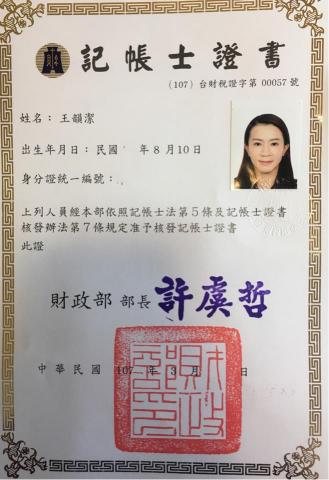 記帳士證書
(107) 台財稅證字第 00057 號
姓名：王韻潔
出生年月日：民國 年8月10日
身分證統一編號：
上列人員經本部依照記帳士法第5條及記帳士證書
核發辦法第7條規定准予核發記帳士證書
此證
財政部 部長 許虞哲
中華民國 107 年 3 月 日
財政部印